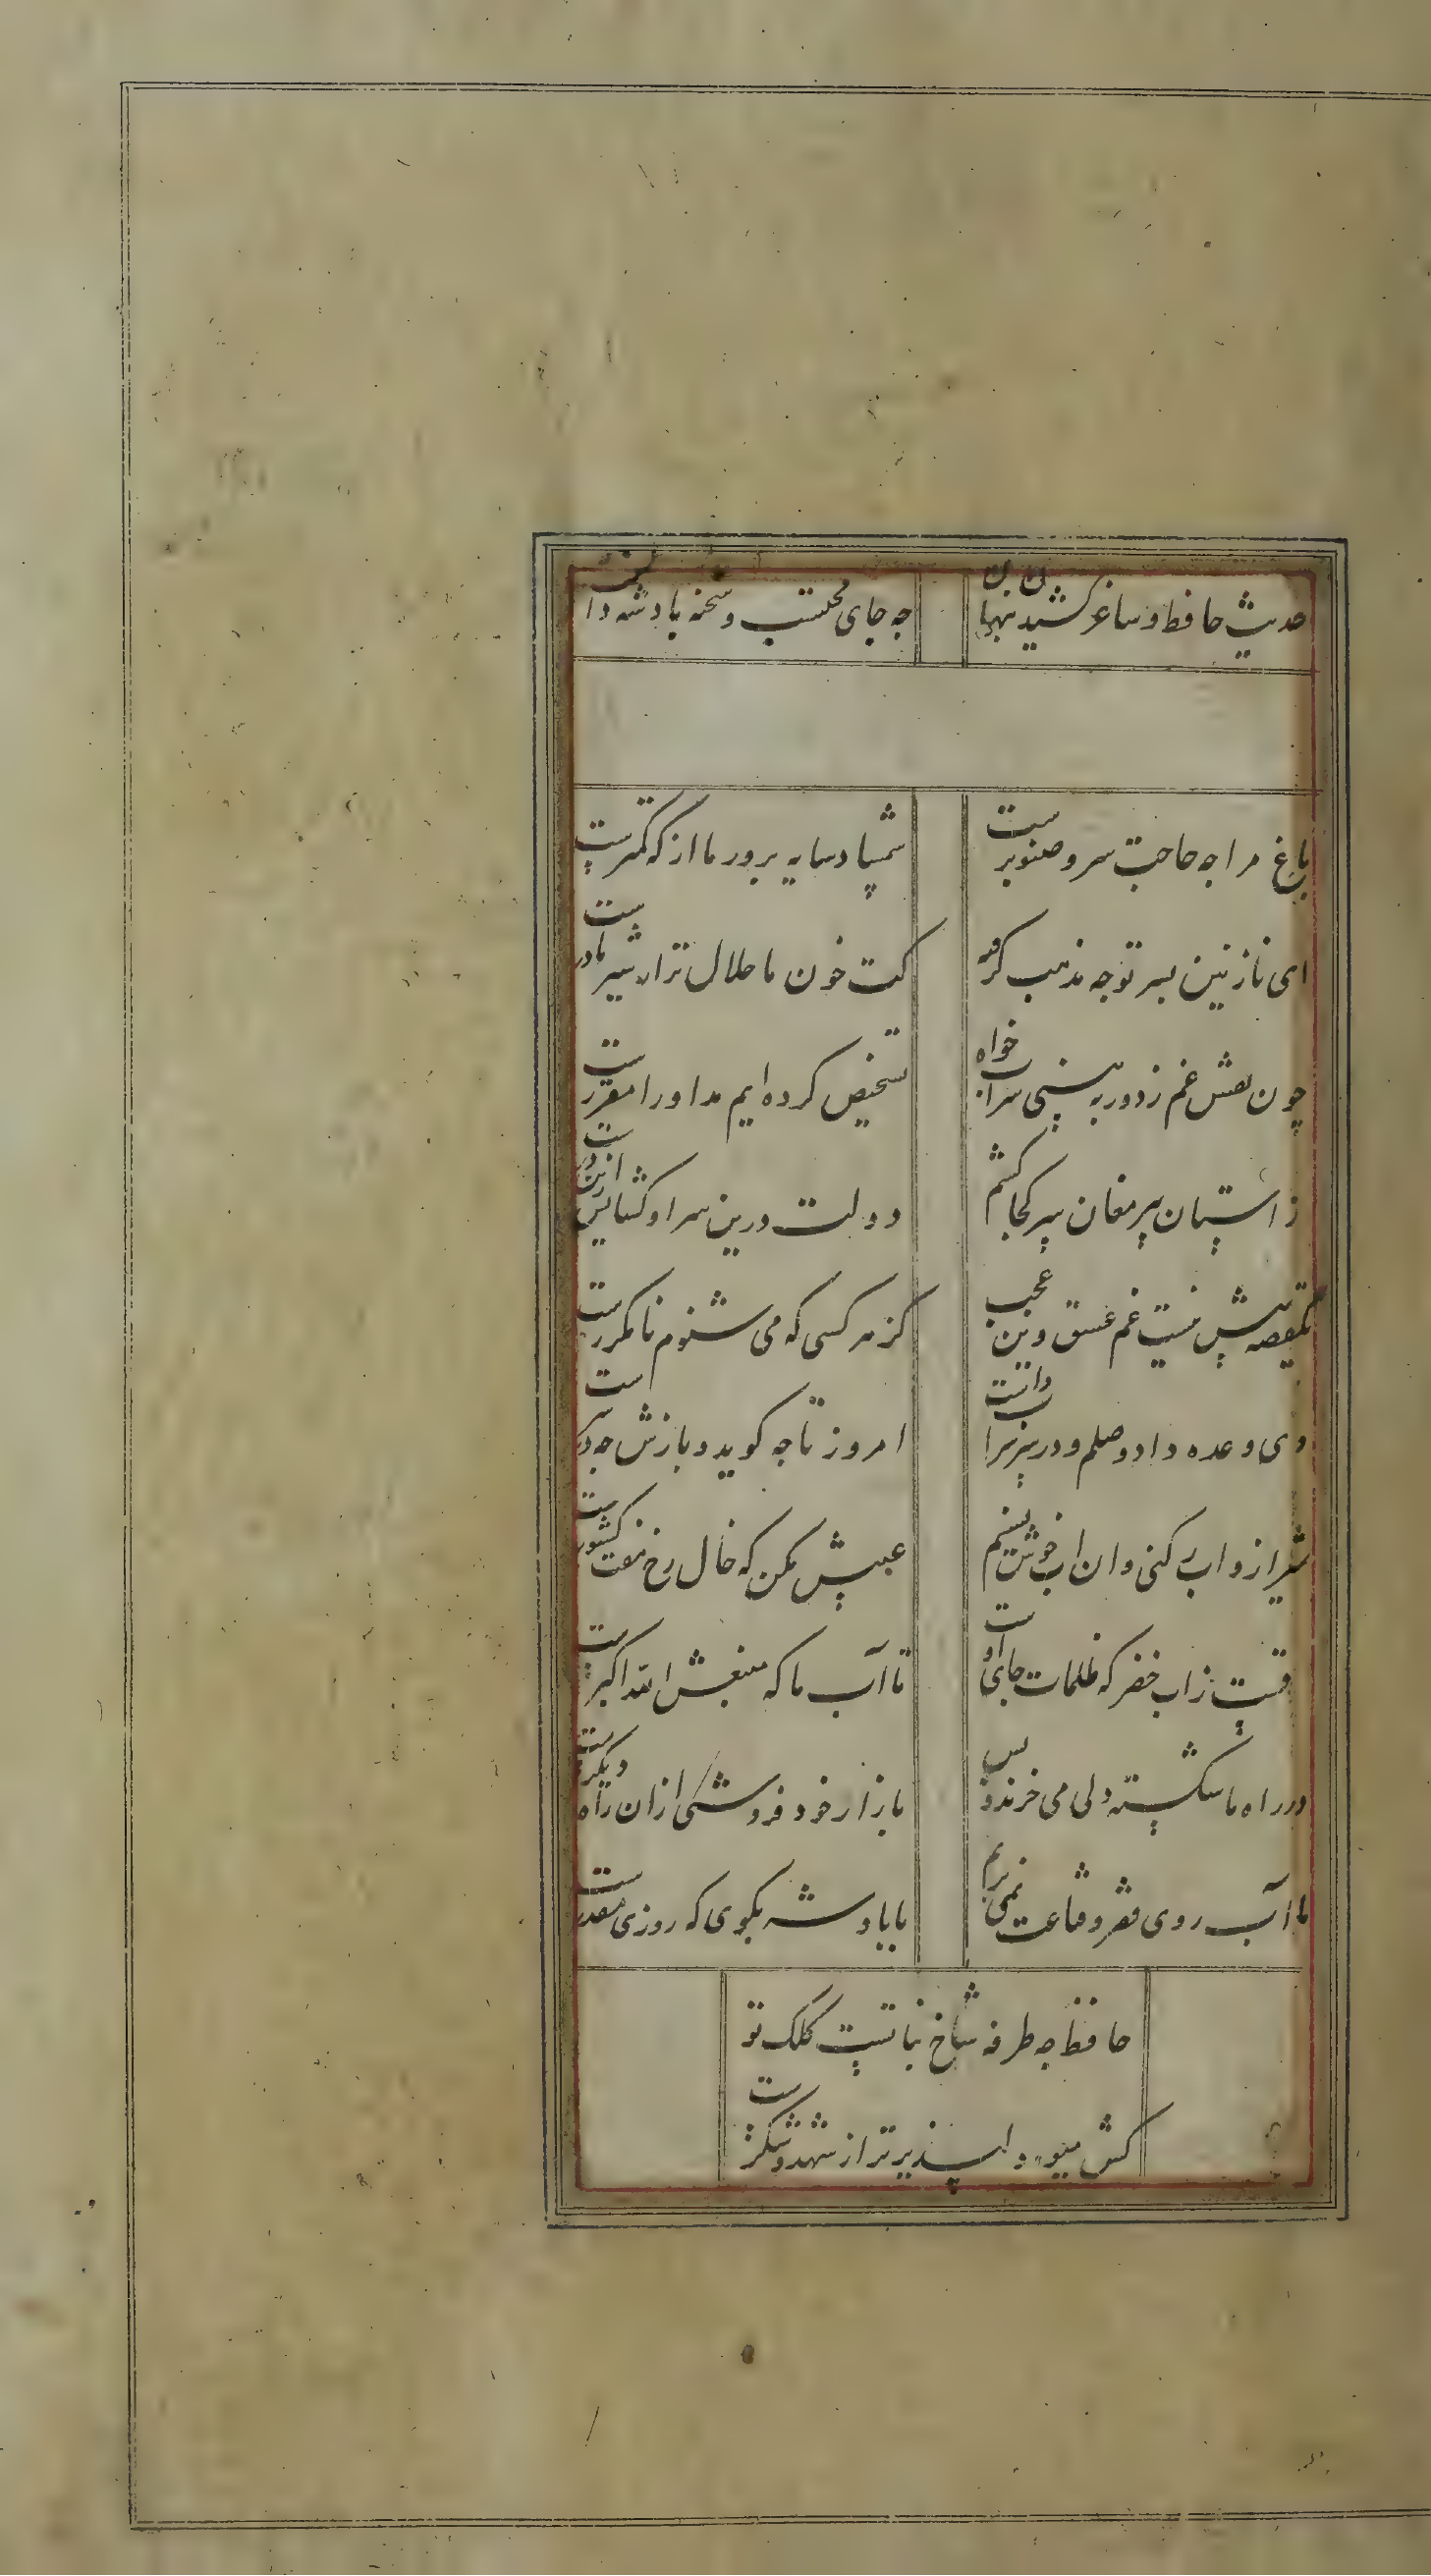 حدیث حافظ و ساغر کشیدن پنهان
چه جای محتسب و شحنه پادشه دانست
باغ مرا چه حاجت سرو و صنوبرست
شمشاد سایه پرور ما از که کمترست
ای نازنین پسر تو چه مذهب گرفته
کت خون ما حلال تر از شیر مادرست
چون نقش غم ز دور به بینی شراب خواه
تشخیص کرده ایم مداوا مقررست
ز آستان پیر مغان سر کجا کشم
دولت درین سرا و گشایش ازین درست
یکقصه بیش نیست غم عشق وین عجب
کز هر کسی که می شنوم نامکررست
دی وعده داد وصلم و در سر شراب داشت
امروز تا چه گوید و بازش چه در سرست
شیراز و اب رکنی و ان اب خوش نسیم
عیبش مکن که خال رخ هفت کشورست
فرقست ز اب خضر که ظلمات جای اوست
تا آب ما که منبعش الله اکبرست
در راه ما شکسته دلی می خرند و بس
بازار خود فروشی از ان راه دیگرست
ما آب روی فقر و قناعت نمی بریم
با پادشه بگوی که روزی مقدرست
حافظ چه طرفه شاخ نباتیست کلک تو
کش میوه دلپذیر تر از شهد و شکرست